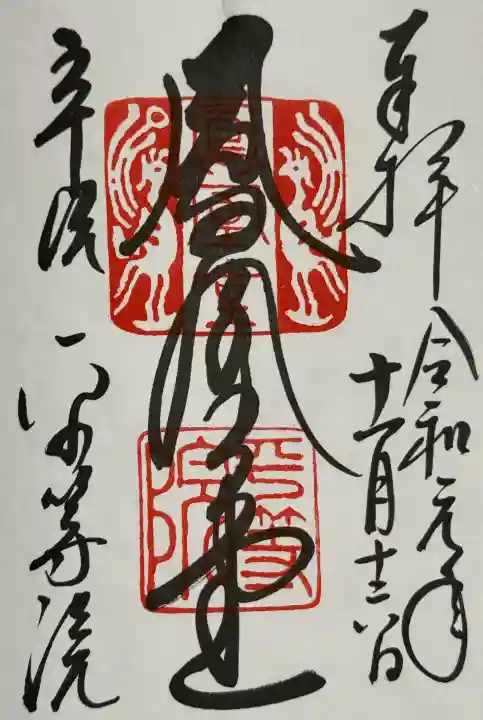 奉拝
令和元年
十一月
鳳凰堂
平等院
鳳凰堂
平等院